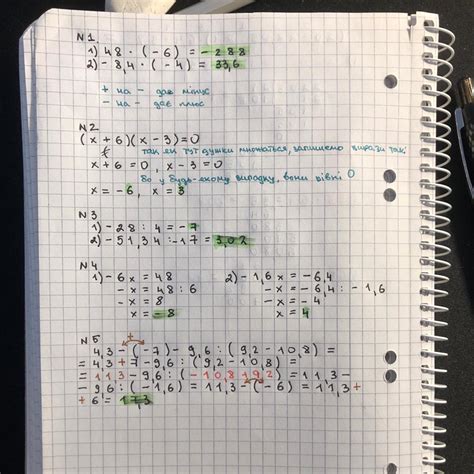 N1
1) 48 · (-6) = -288
2) -8,4 · (-4) = 33,6
+ на - дає мінус
- на - дає плюс
N2
(x + 6)(x - 3) = 0
так як тут дужки множаться, запишемо вирази так:
x + 6 = 0, x - 3 = 0
бо у будь-якому випадку, вони рівні 0
x = -6, x = 3
N3
1) -28 : 4 = -7
2) -51,34 : -17 = 3,02
N4
1) -6x = 48
-x = 48 : 6
-x = 8
x = -8
2) -1,6x = -6,4
-x = -6,4 : -1,6
-x = -4
x = 4
N5
+
4,3 - (-7) - 9,6 : (9,2 - 10,8) =
= 4,3 + 7 - 9,6 : (9,2 - 10,8) =
= 11,3 - 9,6 : (-10,8 9,2) = 11,3 -
- 9,6 : (-1,6) = 11,3 - (-6) = 11,3 +
+ 6 = 17,3